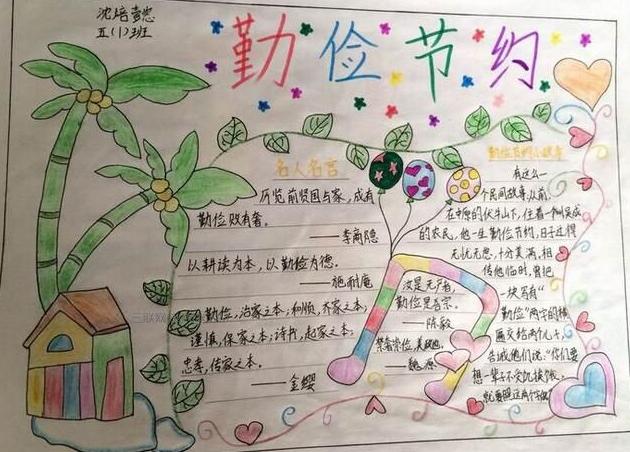 沈培壹恋
五(1)班
勤俭节约
名人名言
历览前贤国与家,成有
勤俭败有奢。
——李商隐
以耕读为本,以勤俭为德。
——施耐庵
勤俭,治家之本;和顺,齐家之本;
谨慎,保家之本;诗书,起家之本;
忠孝,传家之本。
——金缨
汝是无产者,
勤俭是吾宗。
——陈毅
禁奢崇俭,美政也。
——魏源
勤俭节约小故事
有这么一
个民间故事,从前,
在中原的伏牛山下,住着一个叫吴成
的农民,他一生勤俭节约,日子过得
无忧无虑,十分美满,相
传他临时,曾把
一块写有"
勤俭"两字的横
匾交给两个儿子,
告诫他们说:"你们要
想一辈子不受饥挨饿,
就要照这两个字做